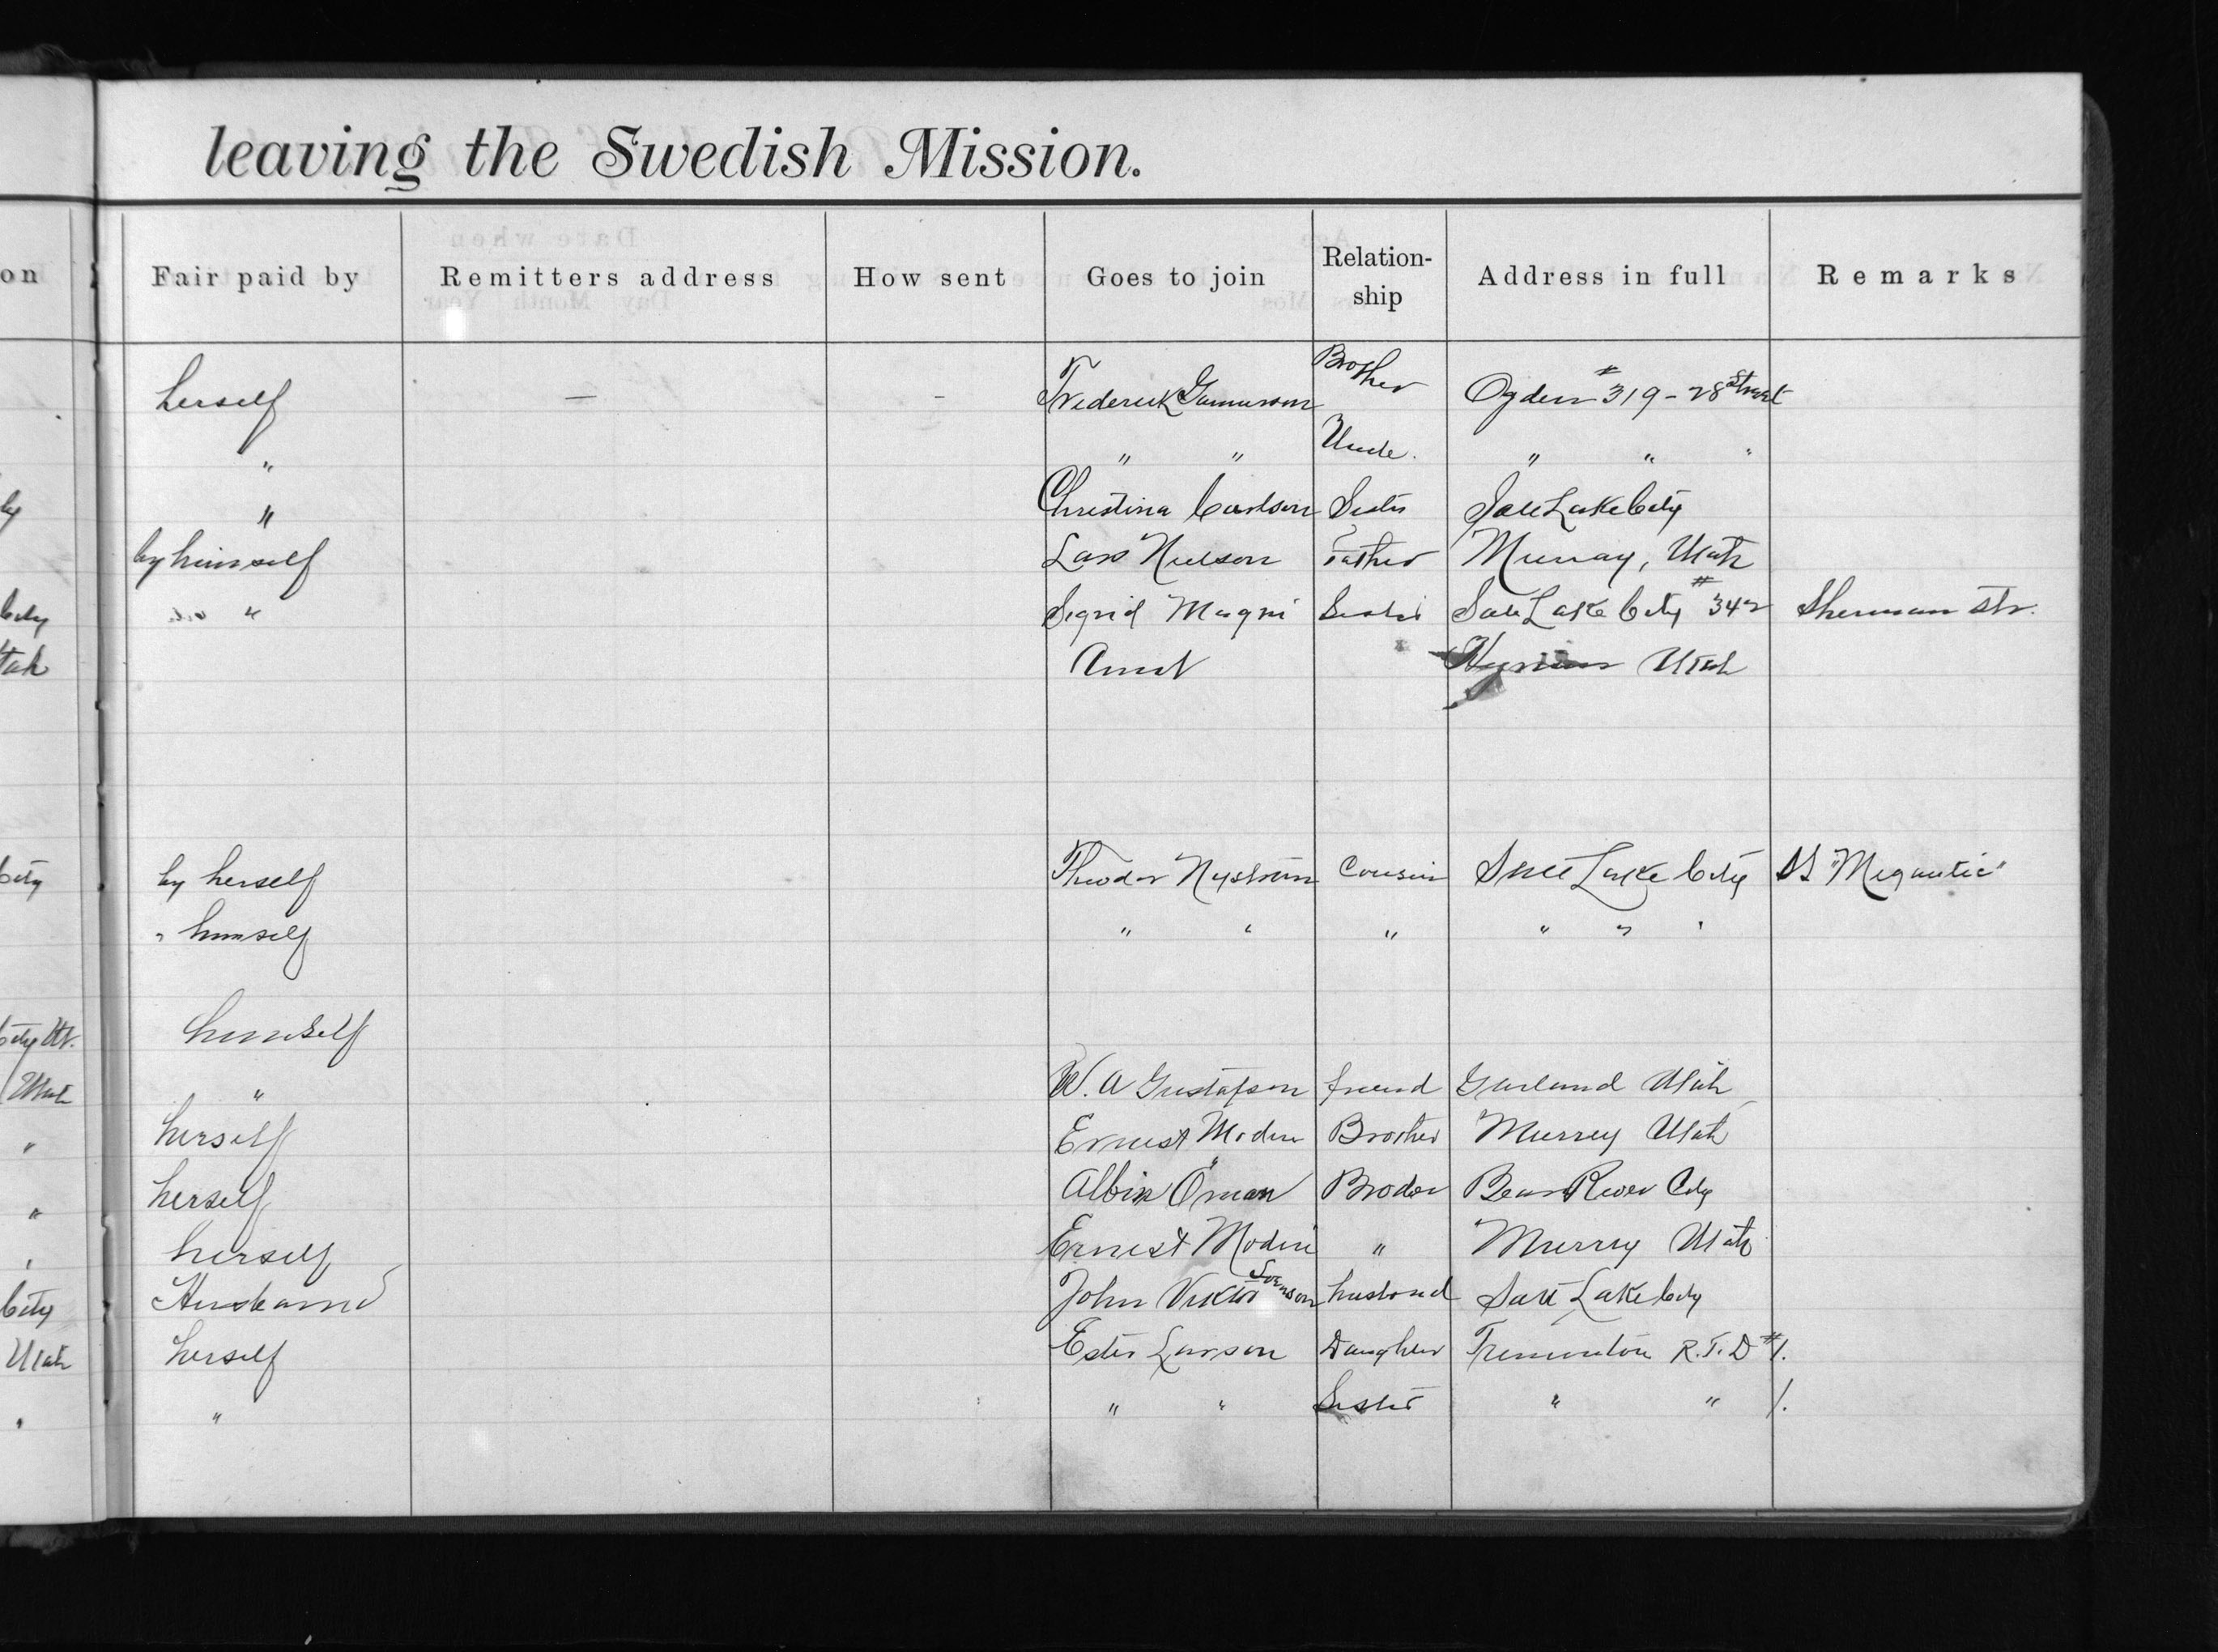 leaving the Swedish Mission.
on Fair paid by Remitters address How sent Goes to join Relation-ship Address in full Remarks
herself — - Frederick Brother Ogden #319 - 28 Street
" " " Uncle. " " "
ly " Christina Carlson Sister Salt Lake City
by himself Lars Neilson Father Murray, Utah
City " Sigrid Magni Sister Salt Lake City #342 Sherman Str.
tah Aunt Utah
City by herself Theodor Nystrom Cousin Salt Lake City SS "Megantic"
" himself " " " " " "
City Ut. himself
Utah " W. A Gustafson friend Garland Utah
" herself Ernest Modin Brother Murrey Utah
" herself Albin Öman Broder Bear River City
" herself Ernest Modin " Murrey Utah
City Husband John Viktor Svenson husband Salt Lake City
Utah herself Ester Larson Daughter Tremonton R.F.D #1.
" " " " Sister " " 1.